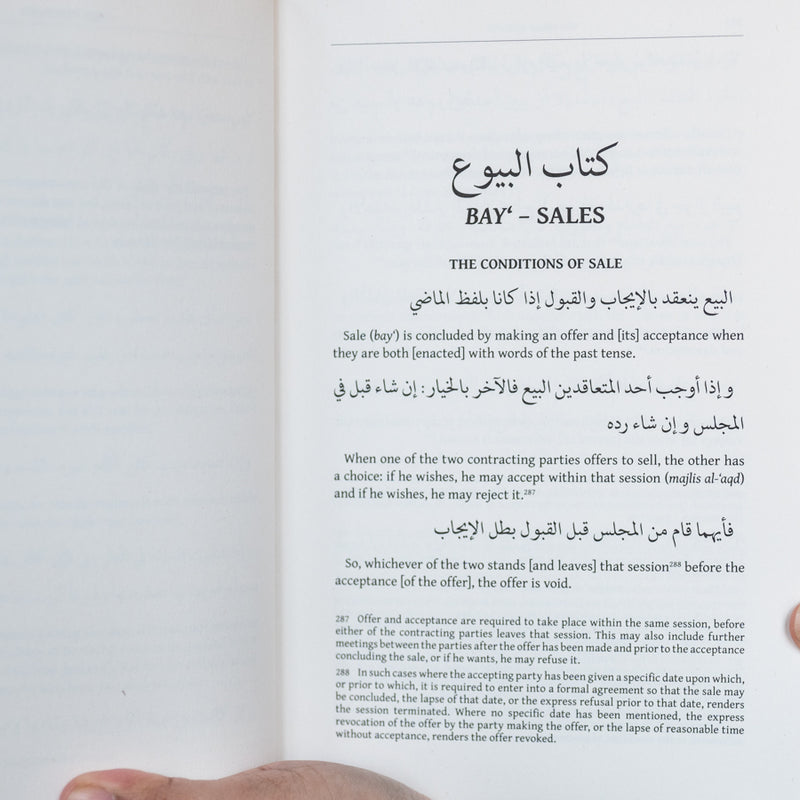 كتاب البيوع
BAY‘ – SALES
THE CONDITIONS OF SALE
البيع ينعقد بالإيجاب والقبول إذا كانا بلفظ الماضي
Sale (bay‘) is concluded by making an offer and [its] acceptance when
they are both [enacted] with words of the past tense.
و إذا أوجب أحد المتعاقدين البيع فالآخر بالخيار: إن شاء قبل في
المجلس و إن شاء رده
When one of the two contracting parties offers to sell, the other has
a choice: if he wishes, he may accept within that session (majlis al-‘aqd)
and if he wishes, he may reject it.287
فأيهما قام من المجلس قبل القبول بطل الإيجاب
So, whichever of the two stands [and leaves] that session288 before the
acceptance [of the offer], the offer is void.
287 Offer and acceptance are required to take place within the same session, before
either of the contracting parties leaves that session. This may also include further
meetings between the parties after the offer has been made and prior to the acceptance
concluding the sale, or if he wants, he may refuse it.
288 In such cases where the accepting party has been given a specific date upon which,
or prior to which, it is required to enter into a formal agreement so that the sale may
be concluded, the lapse of that date, or the express refusal prior to that date, renders
the session terminated. Where no specific date has been mentioned, the express
revocation of the offer by the party making the offer, or the lapse of reasonable time
without acceptance, renders the offer revoked.